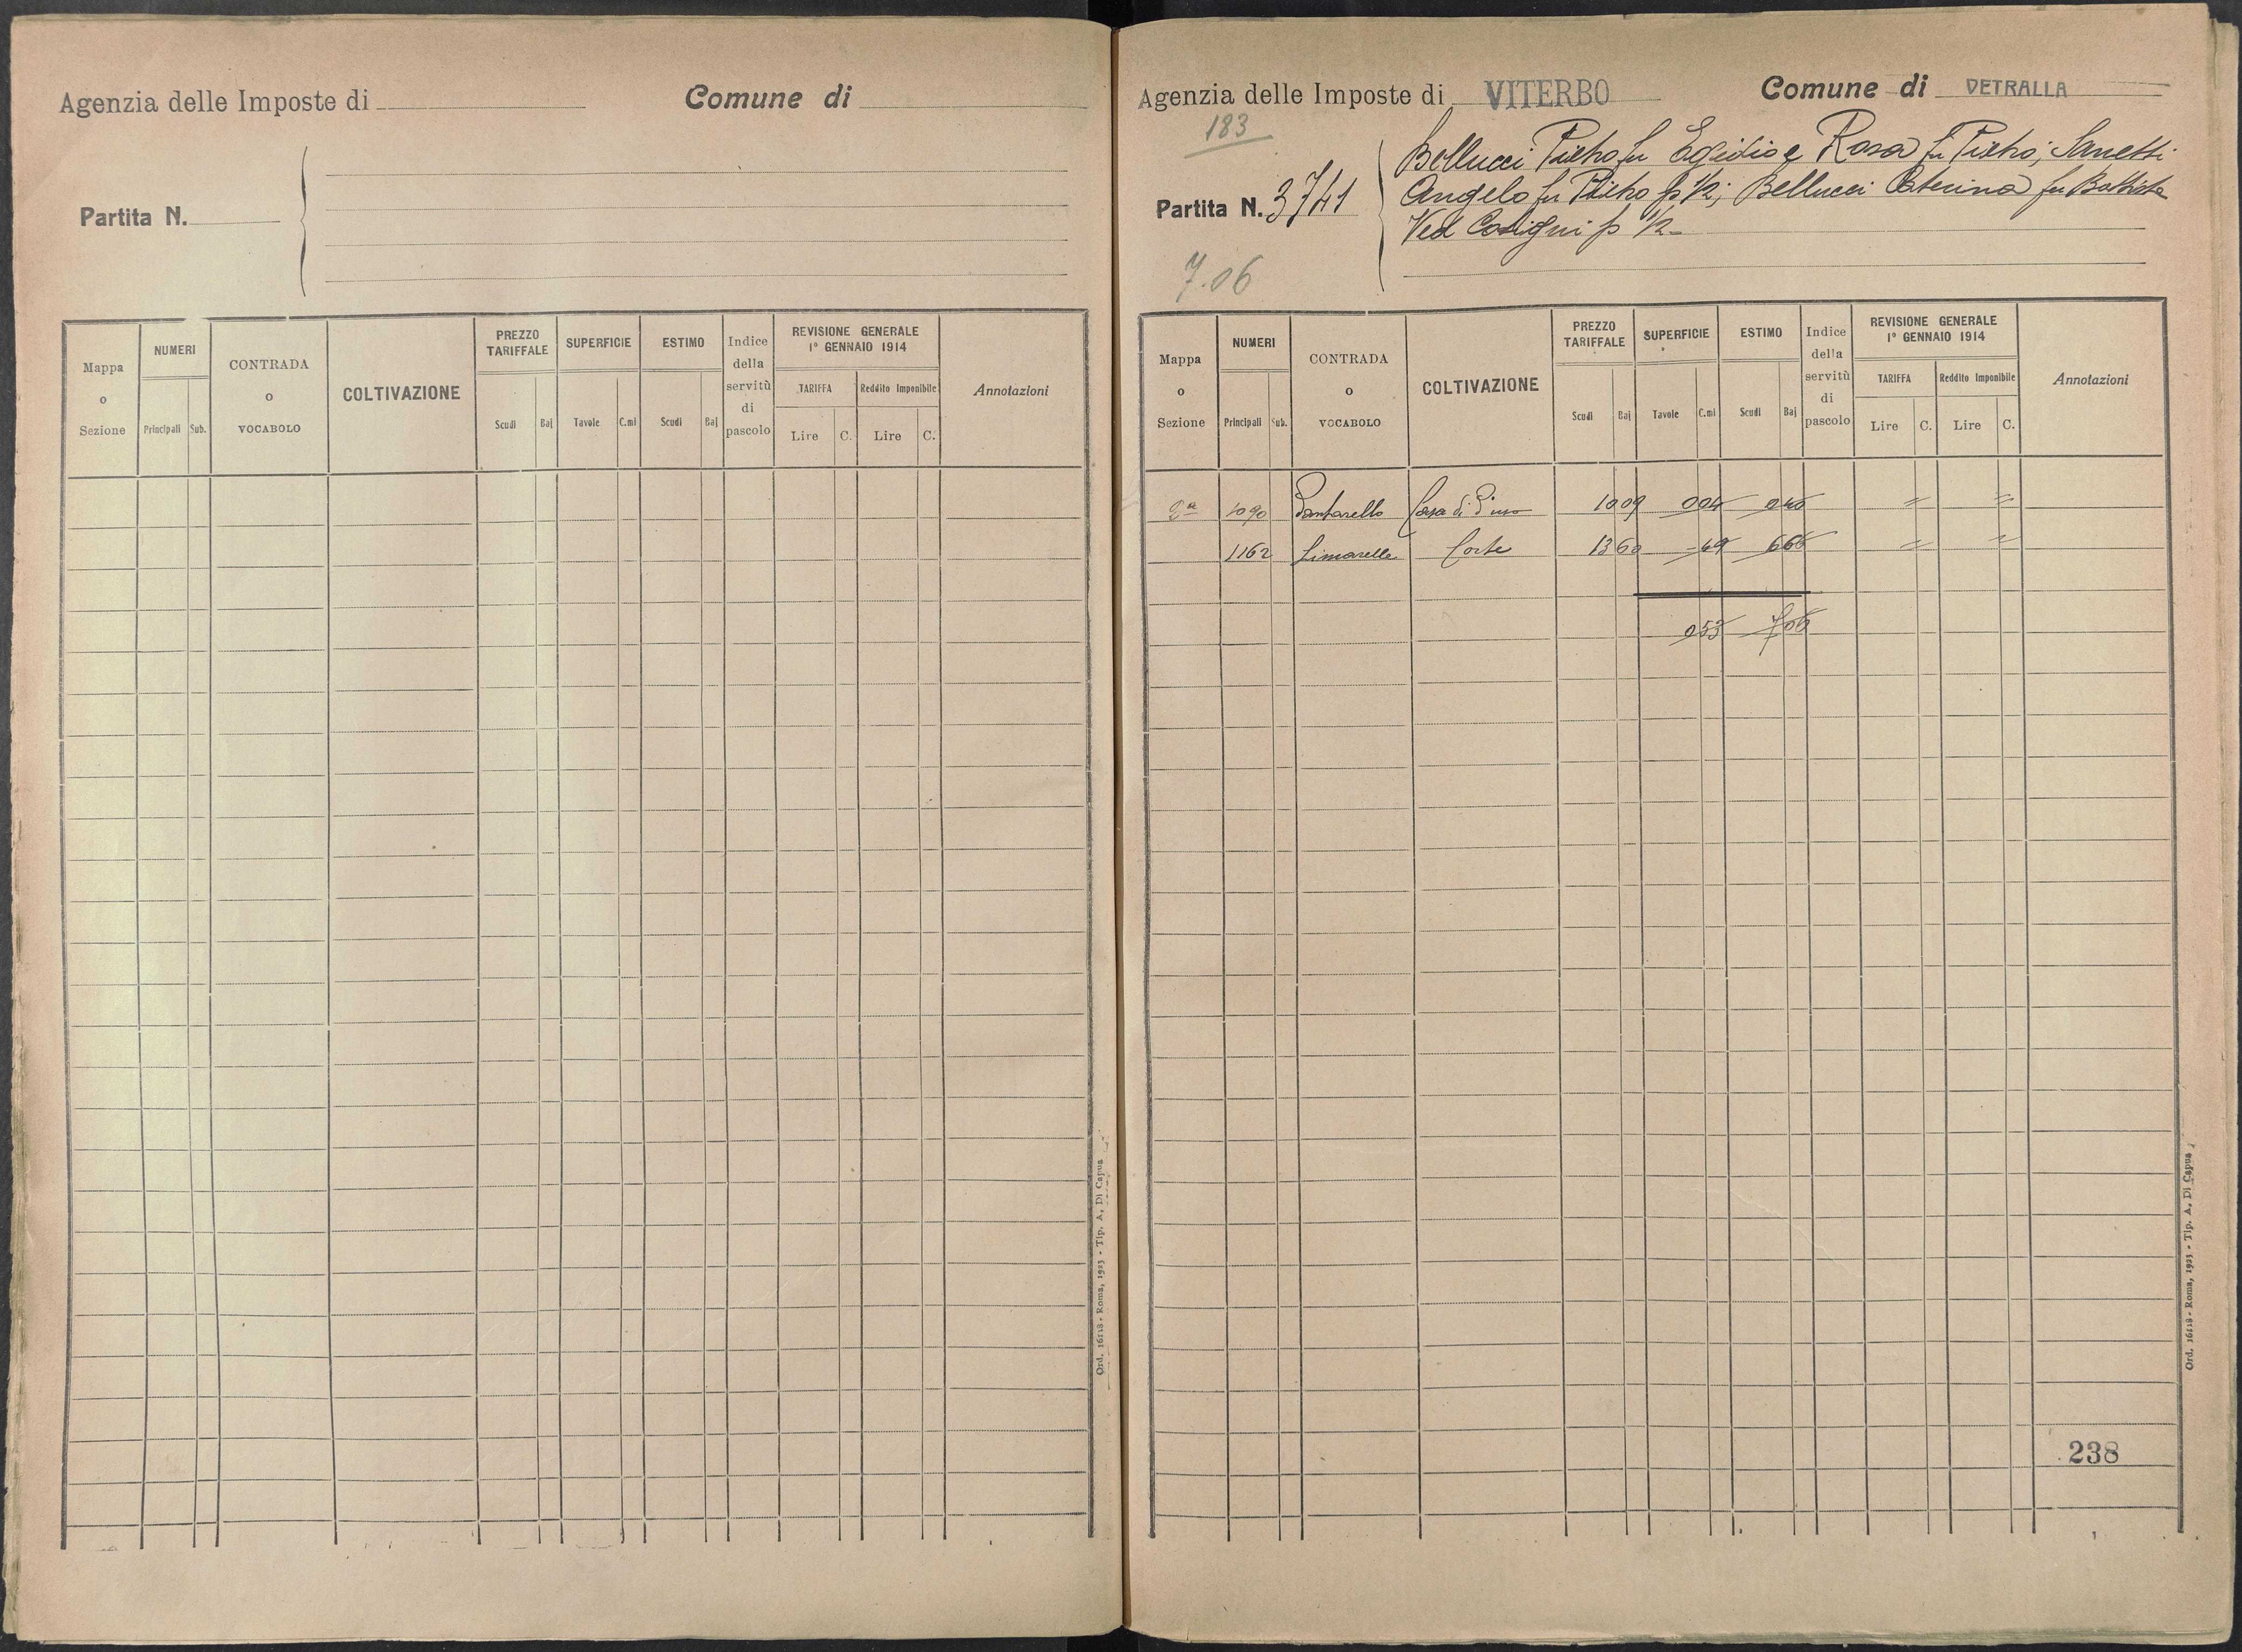 Agenzia delle Imposte di
Comune di
Partita N.
Mappa o Sezione
NUMERI
Principali
Sub.
CONTRADA o VOCABOLO
COLTIVAZIONE
PREZZO TARIFFALE
Scudi
Baj
SUPERFICIE
Tavole
C.mi
ESTIMO
Scudi
Baj
Indice della servitù di pascolo
REVISIONE GENERALE
1° GENNAIO 1914
TARIFFA
Reddito Imponibile
Lire
C.
Lire
C.
Annotazioni
Ord. 16118 - Roma, 1923 - Tip. A. Di Capua
Agenzia delle Imposte di VITERBO
Comune di VETRALLA
183
Bellucci Pietro fu Egidio e Rosa fu Pietro; Sanetti
Partita N. 3741
Angelo fu Pietro p 1/2; Bellucci Caterina fu Battista
Ved p 1/2
7.06
Mappa o Sezione
NUMERI
Principali
Sub.
CONTRADA o VOCABOLO
COLTIVAZIONE
PREZZO TARIFFALE
Scudi
Baj
SUPERFICIE
Tavole
C.mi
ESTIMO
Scudi
Baj
Indice della servitù di pascolo
REVISIONE GENERALE
1° GENNAIO 1914
TARIFFA
Reddito Imponibile
Lire
C.
Lire
C.
Annotazioni
2a 1090 1009 004 040 = =
1162 Corte 1360 -49 666 = =
053 706
238
Ord. 16118 - Roma, 1923 - Tip. A. Di Capua